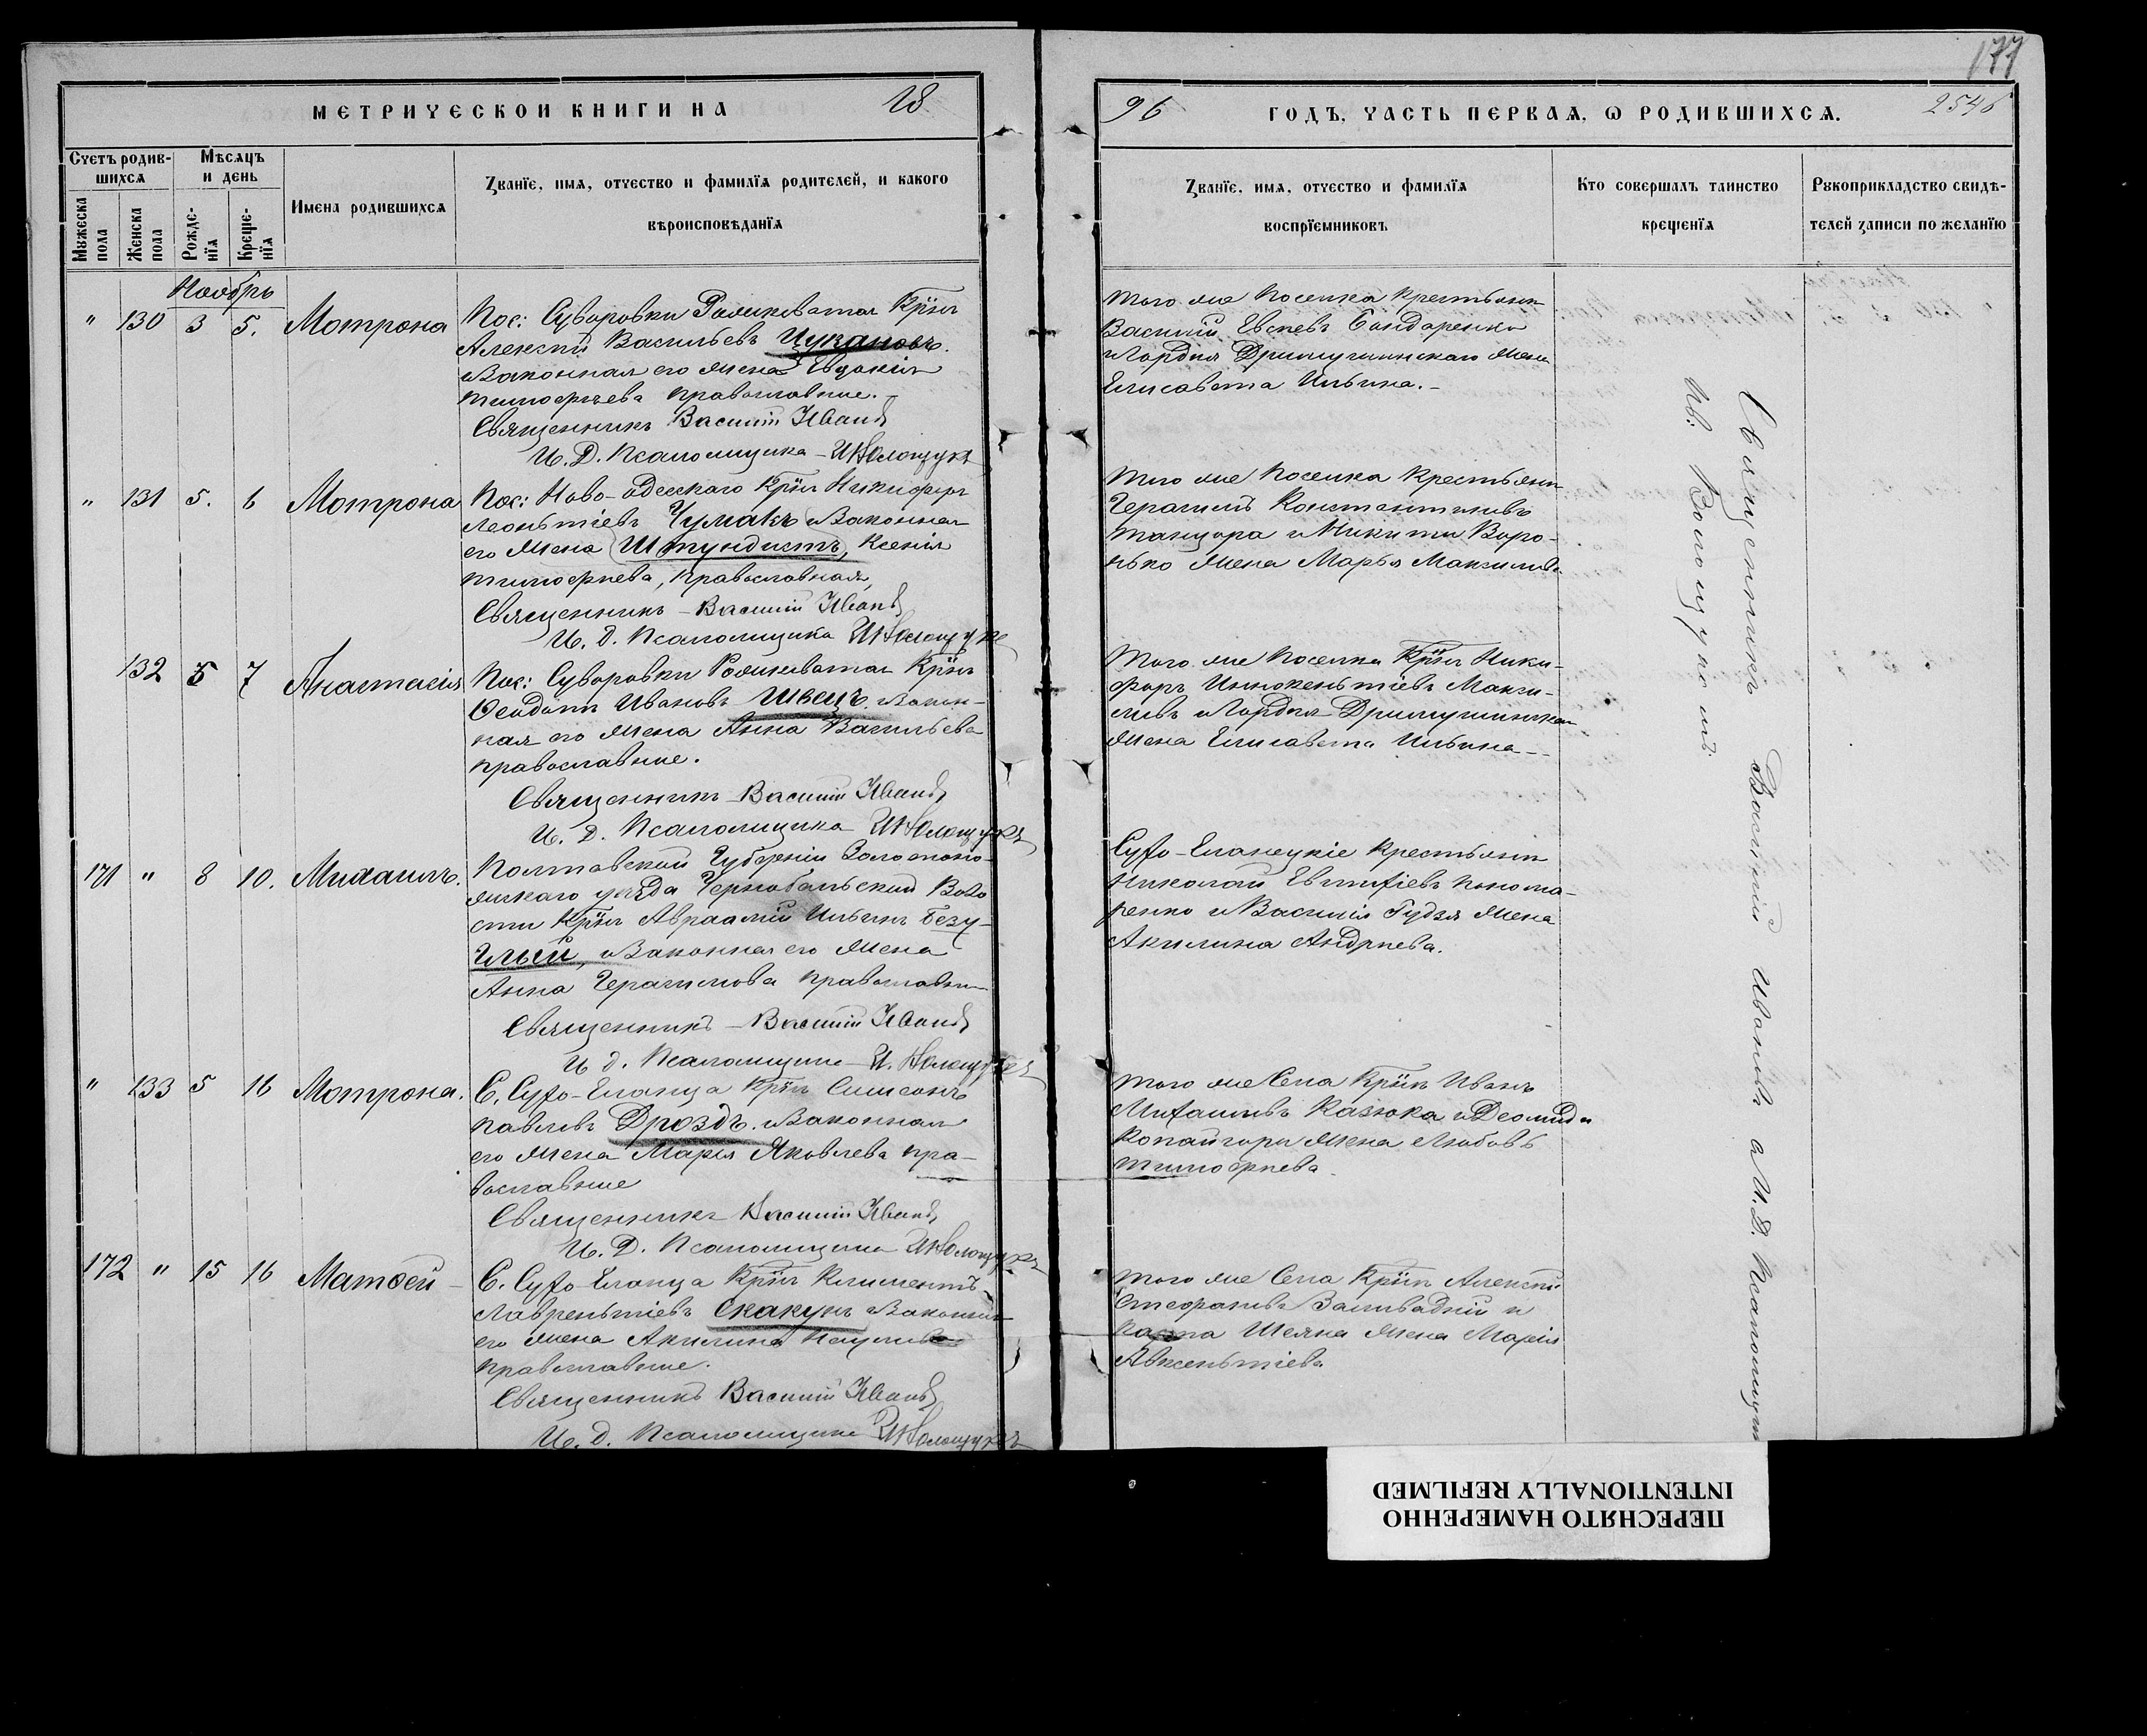 177
МЕТРИЧЕСКОЙ КНИГИ НА 18
96 ГОДЪ, ЧАСТЬ ПЕРВАЯ, Ѡ РОДИВШИХСЯ. 2546
Счетъ родив-
шихся
Мѣсяцъ
и день
Имена родившихся
Званіе, имя, отчество и фамилія родителей, и какого
вѣроисповѣданія
Мужеска
пола
Женска
пола
Рожде-
нія
Креще-
нія
Званіе, имя, отчество и фамилія
воспріемниковъ
Кто совершалъ таинство
крещенія
Рукоприкладство свидѣ-
телей записи по желанію
Ноябрь
" 130 3 5. Мотрона
Пос: Суворовки Крӥн
Алексѣй Васильевъ Цукановъ.
и Законная его жена Евдокія
Тимофѣева православные.
Священникъ Василій Ивановъ
И. Д. Псаломщика И Волощукъ
Того же Поселка Крестьянин
Василий Бондаренко
и Гордѣя жена
Елисавета Ильина.
" 131 5. 6 Мотрона
Пос: Ново-Одесскаго Крӥн Никифоръ
Леонтіевъ Чумакъ и Законная
его жена (Штундистъ), Ксенія
Тимофѣева, Православная,
Священникъ Василій Ивановъ
И. д. Псаломщика И Волощукъ
Того же Поселка Крестьянин
Герасимъ Константиновъ
Танцюра и Никиты Воро-
нько жена Марья
132 5 7 Анастасія
Пос: Суворовки Крӥн
Ѳеодотъ Ивановъ Швецъ. и Закон-
ная его жена Анна Васильева
православные.
Священникъ Василій Ивановъ
И. Д. Псаломщика И Волощукъ
Того же Поселка Крӥн Ники-
форъ Иннокентіевъ
и Гордѣя
жена Елисавета Ильина
171 " 8 10. Михаилъ.
Полтавской Губерніи Золотоно-
шскаго уѣзда Чернобаевской Воло
сти Крӥн Авраамій Ильинъ Безу-
глый, и Законная его жена
Анна Герасимова православн
Священникъ Василій Ивановъ
И д. Псаломщика И. Волощукъ
Сухо-Еланецкіе Крестьяни
Николай Евтихіевъ Понома-
ренко и Василія Гудзя жена
Акилина Андреева.
" 133 5 16 Мотрона.
С. Сухо-Еланца Крӥн Симеонъ
Павловъ Дроздъ. и Законная
его жена Марія Яковлева пра-
вославные
Священникъ Василій Ивановъ
И. Д. Псаломщика И Волощукъ
Того же Села Крӥн Иванъ
Михаиловъ Казюка и Деомида
Копайгоры жена Любовь
Тимофѣева
172 " 15 16 Матѳей
С. Сухо-Еланца Крӥн Климентъ
Лаврентіевъ Скакунъ и Законная
его жена Акилина
православные.
Священникъ Василій Ивановъ
И. д. Псаломщика И Волощукъ
Того же Села Крӥн Алексѣй
Стефановъ и
Карпа жена Марія
Авксентіева
Священникъ Василій Ивановъ и И. Д. Псаломщик
Ив: Волощукомъ
ПЕРЕСНЯТО НАМЕРЕННО
INTENTIONALLY REFILMED